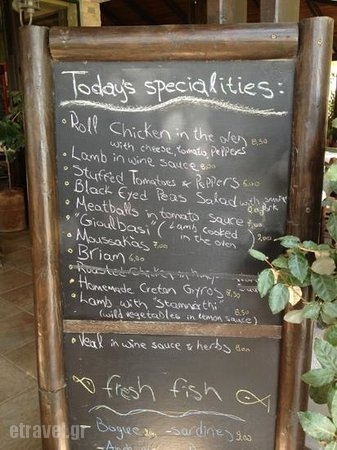 Today's specialities:
Roll Chicken in the oven
with cheese, tomato, peppers 8,50
Lamb in wine sauce 8,00
Stuffed Tomatoes & Peppers 6,00
Black Eyed Peas Salad with smoke
pork
Meatballs in tomato sauce 7,00
"Gioulbasi" (Lamb cooked
in the oven)
Moussakas 7,00
Briam 6,00
Roasted Chicken in
Homemade Cretan Gyros 8,50
Lamb with "Stamnathi" 8,50
(wild vegetables in lemon sauce)
Veal in wine sauce & herbs 8,00
fresh fish
- Bogue - sardines 9,00
etravel.gr